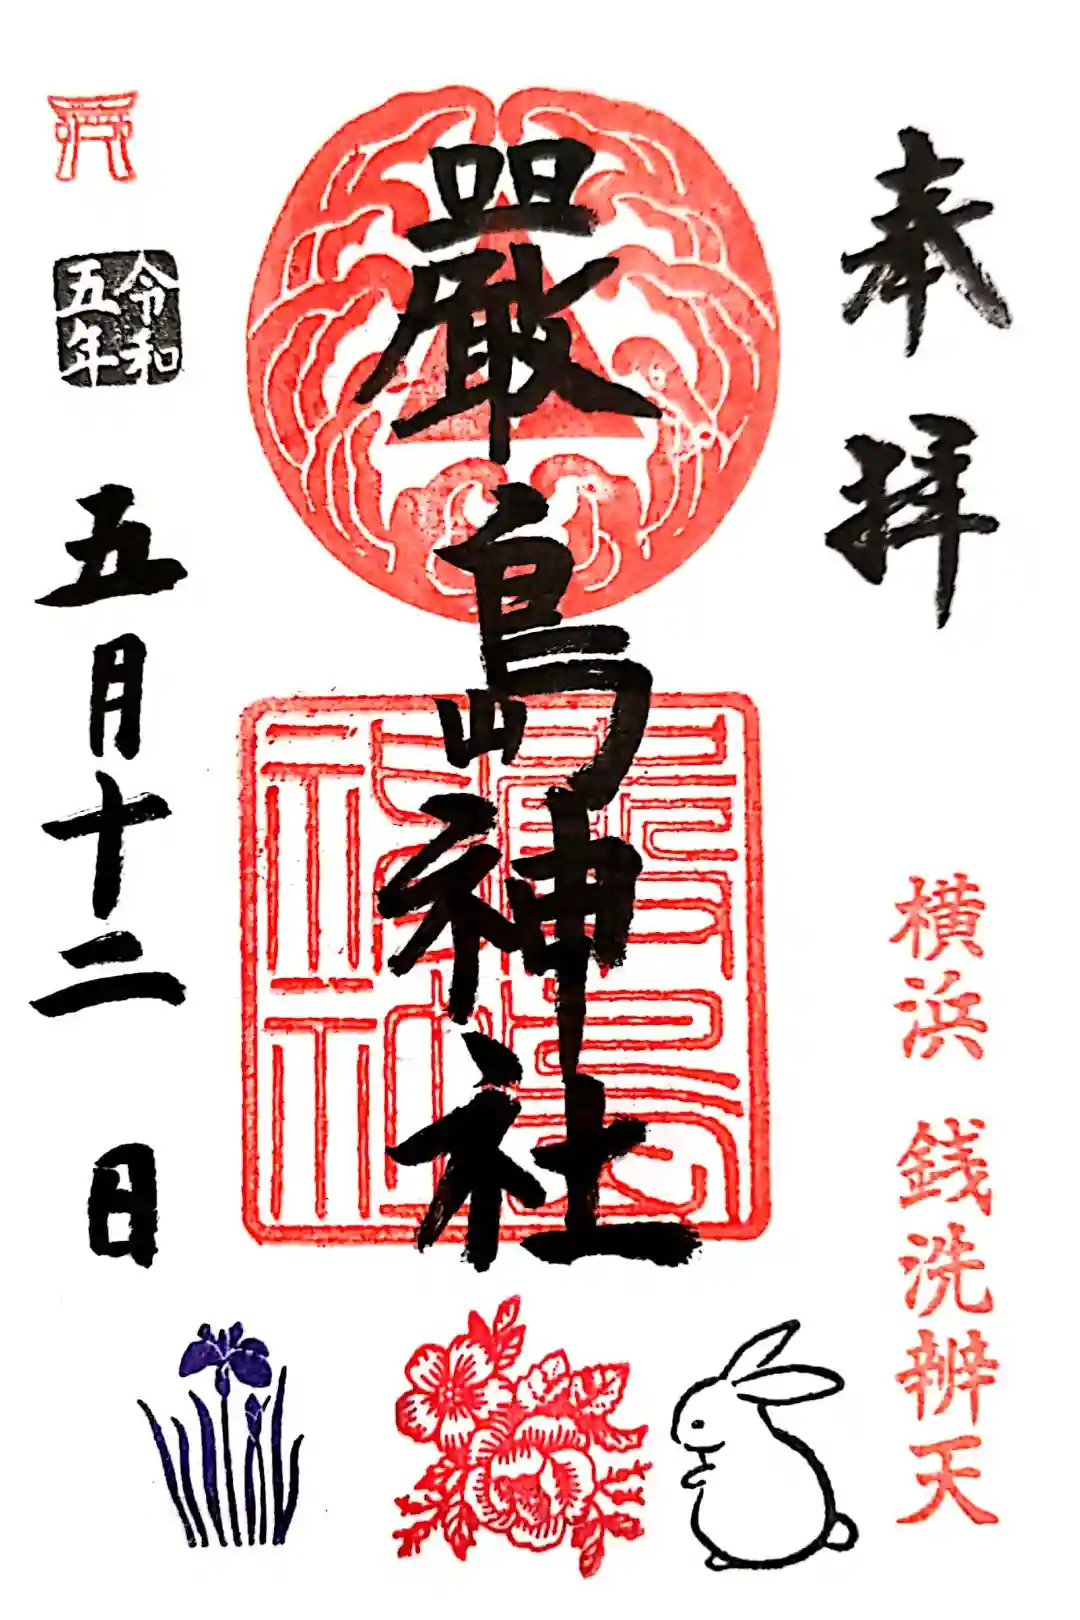 奉拝
横浜 銭洗辨天
嚴島神社
令和
五年
五月十二日